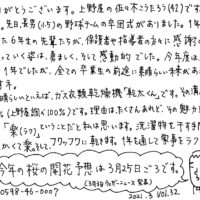 がとうございます。上野屋の佐々木こうたろう(42)です
先日、長男(15)の野球チームの卒団式がありました。1年
た6年生の先輩たちが、保護者や指導者の方々に感謝の
っていく姿は、勇ましく、そして感動的でした。今年度は、
1年でしたが、全ての卒業生の前途に素晴らしい未来があり
ます。
晴らしいといえば、ガス衣類乾燥機「乾太くん」です。その満
(上野屋調べ100%)です。理由は、たくさんあれど、その魅力
「楽(ラク)」ということだと私は思います。洗濯物を干す手間
カラッ、フワッと乾きます。1年を通して家事をラク
今年の桜の開花予想は3月25日ごろです。
(3月3日ウェザーニュース発表)
0598-46-0007
2021.3 VOL.32